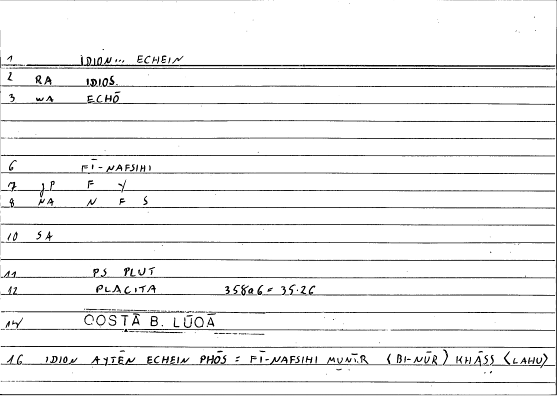 1 IDION... ECHEIN
2 RA IDIOS.
3 WA ECHŌ
6 FĪ-NAFSIHI
7 JP F Y
8 NA N F S
10 SA
11 PS PLUT
12 PLACITA 358a6 = 35.26
14 COSTĀ B. LŪQĀ
16 IDION AYTĒN ECHEIN PHŌS = FĪ-NAFSIHI MUNĪR (BI-NŪR) KHĀṢṢ (LAHU)